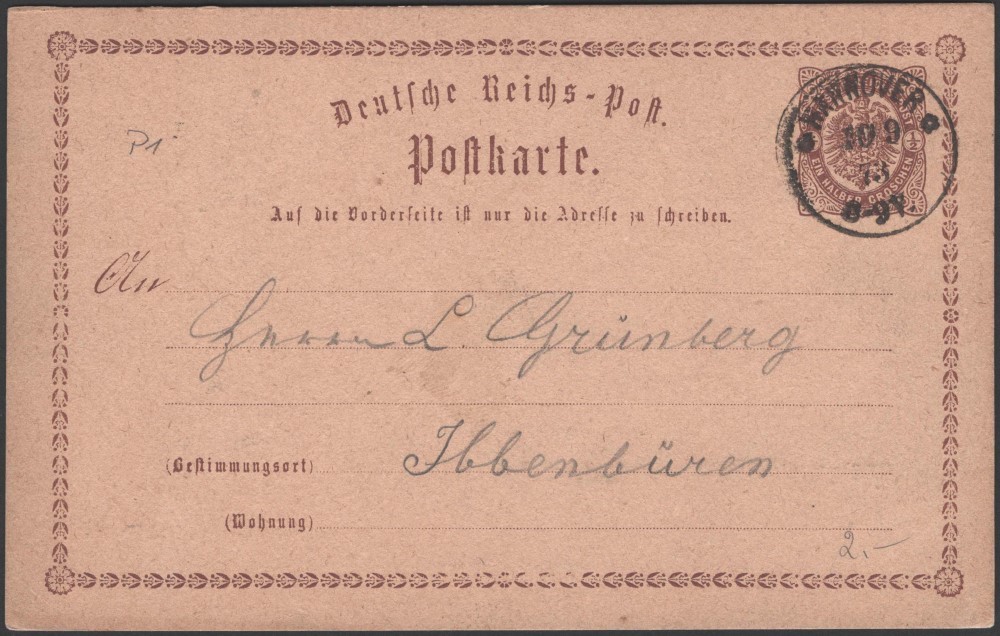 Deutsche Reichs-Post.
Postkarte.
Auf die Vorderseite ist nur die Adresse zu schreiben.
P1
HANNOVER
10 9
73
8-9V.
½
EIN HALBER GROSCHEN
An
Herrn L. Grünberg
(Bestimmungsort) Ibbenbüren
(Wohnung)
2.-